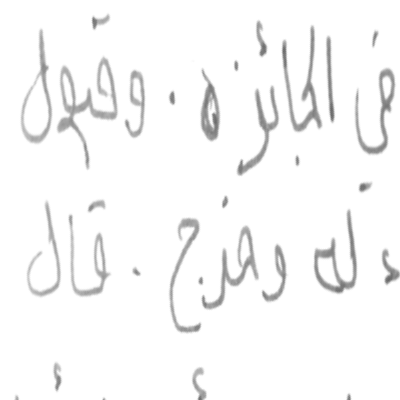 في الجائزه . وقبول
ء له وخرج . قال